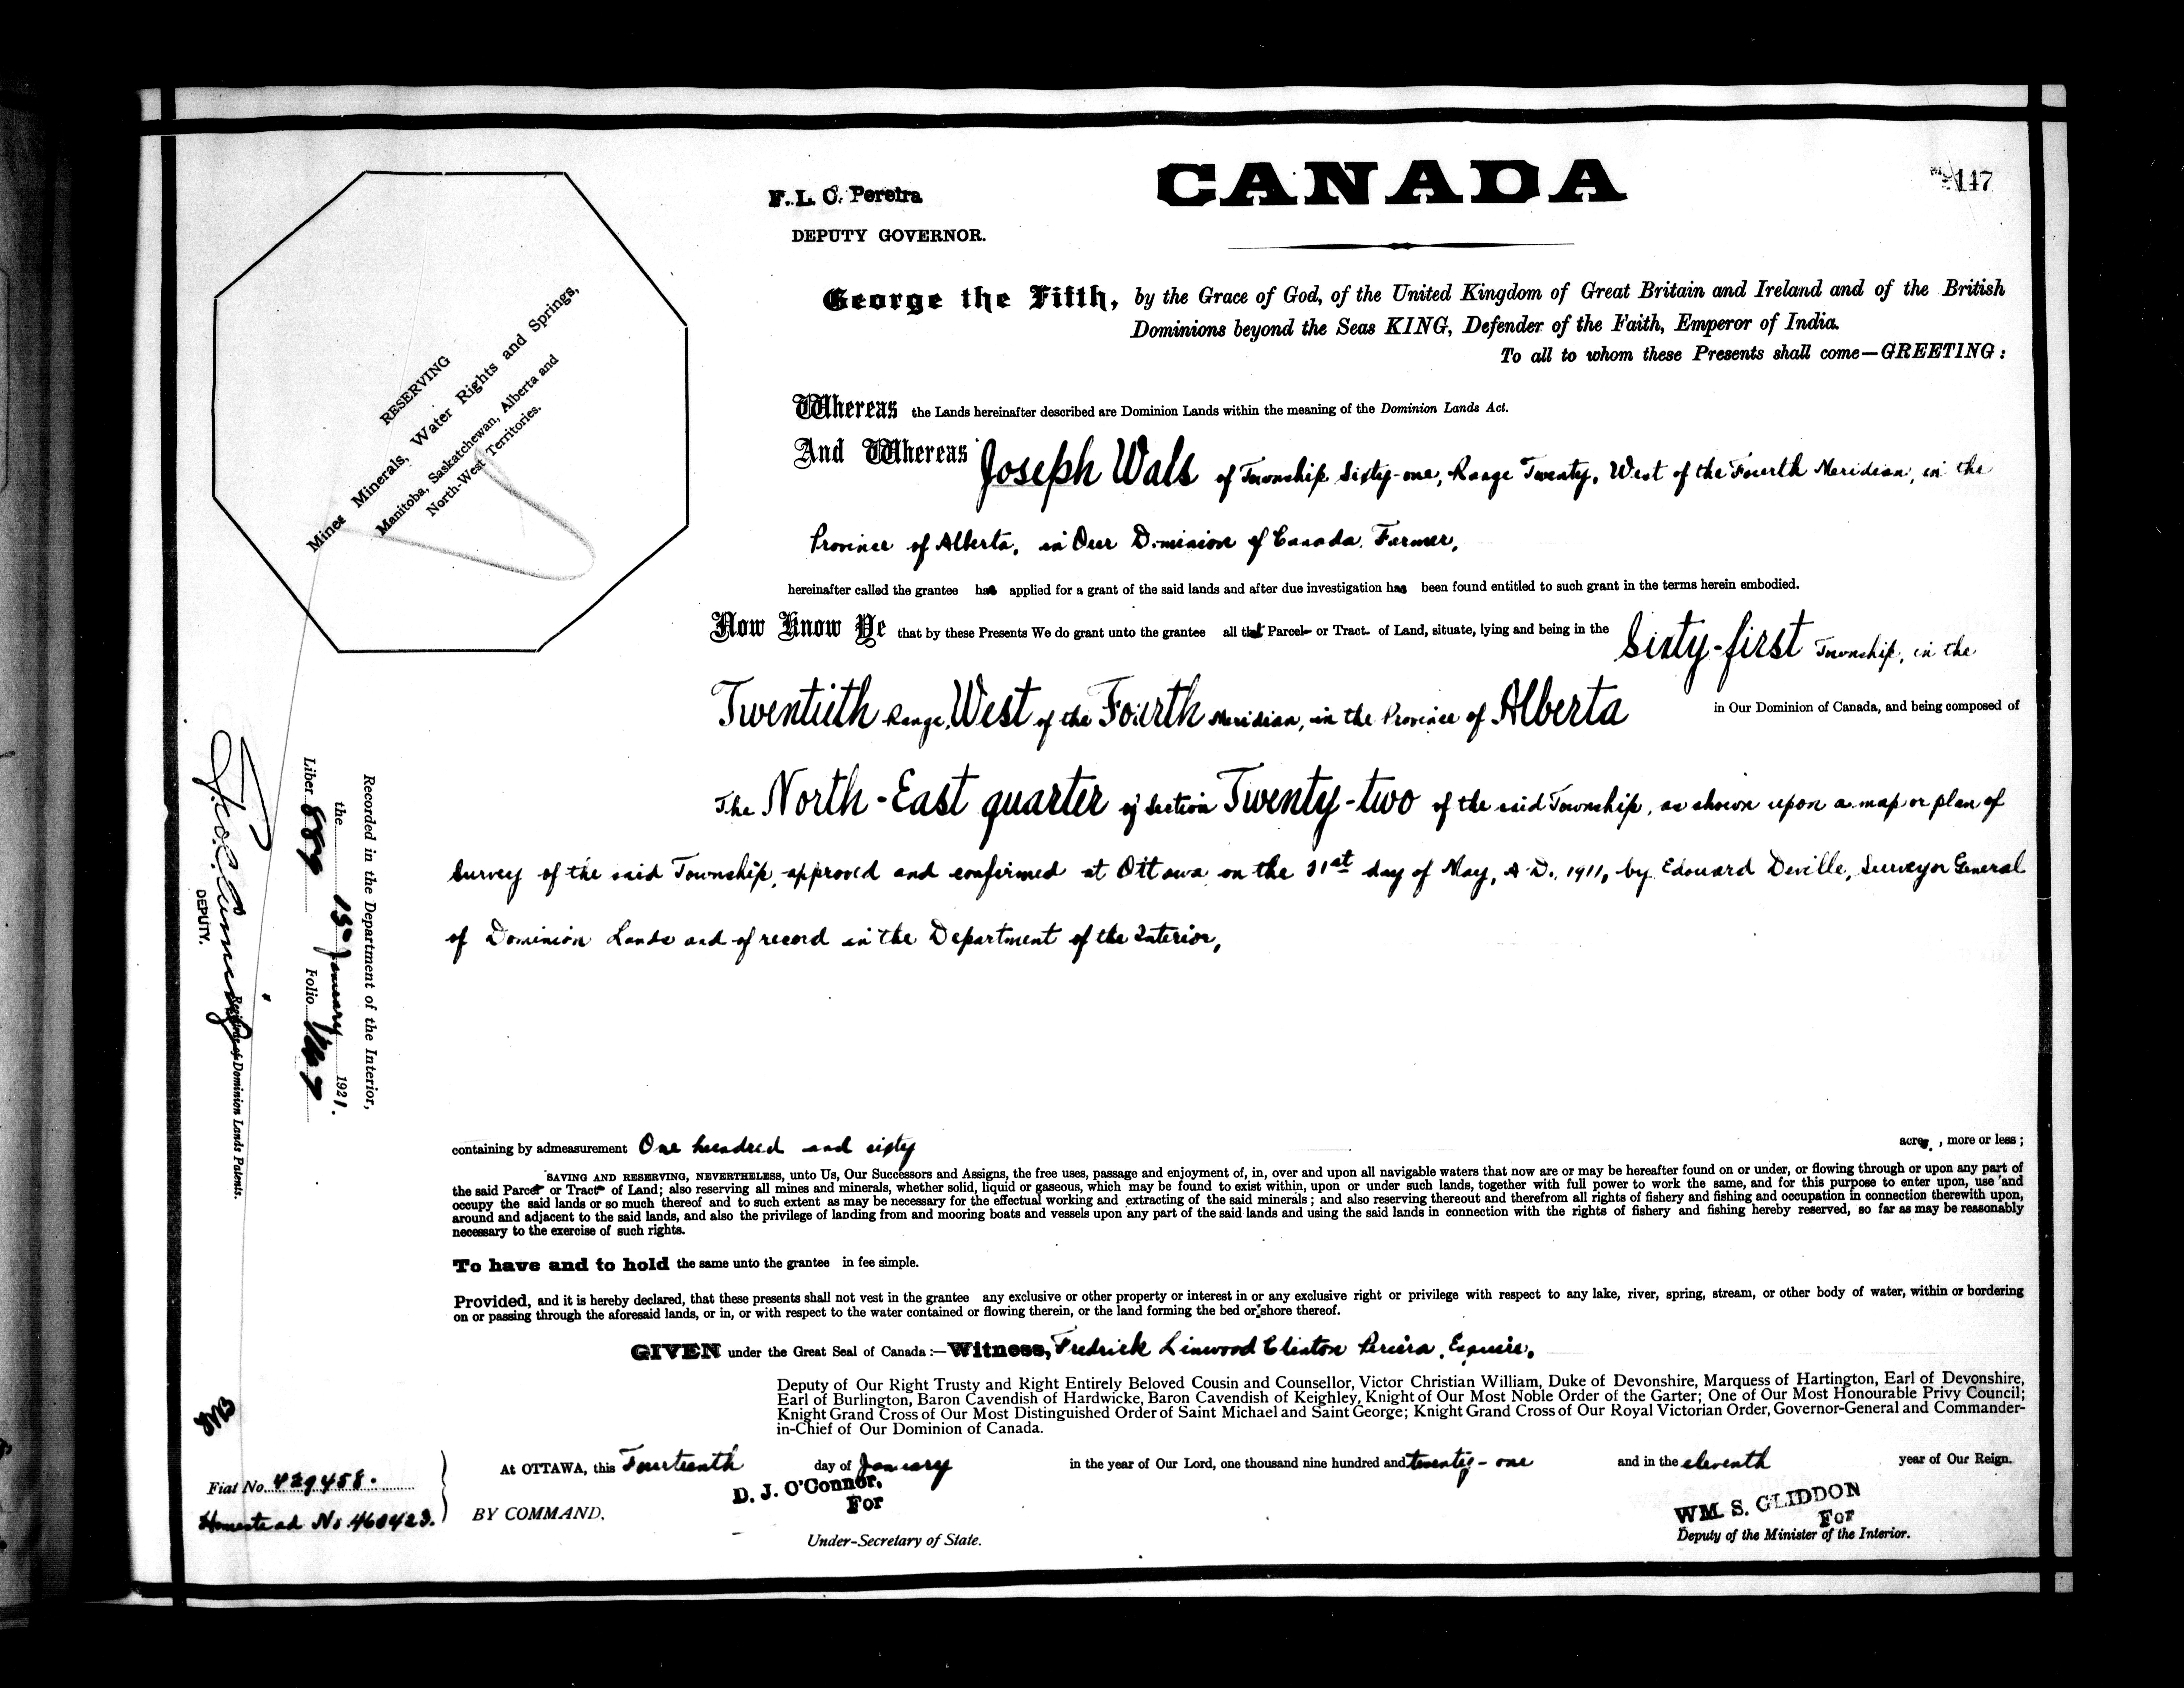 CANADA
147
F. L. C. Pereira
DEPUTY GOVERNOR.
George the Fifth, by the Grace of God, of the United Kingdom of Great Britain and Ireland and of the British
Dominions beyond the Seas KING, Defender of the Faith, Emperor of India.
To all to whom these Presents shall come—GREETING:
RESERVING
Mines Minerals, Water Rights and Springs,
Manitoba, Saskatchewan, Alberta and
North-West Territories.
Whereas the Lands hereinafter described are Dominion Lands within the meaning of the Dominion Lands Act.
And Whereas Joseph Wals of Township Sixty-one, Range Twenty, West of the Fourth Meridian, in the
Province of Alberta, in Our Dominion of Canada, Farmer,
hereinafter called the grantee has applied for a grant of the said lands and after due investigation has been found entitled to such grant in the terms herein embodied.
Now Know Ye that by these Presents We do grant unto the grantee all that Parcel or Tract of Land, situate, lying and being in the Sixty-first Township, in the
Twentieth Range, West of the Fourth Meridian, in the Province of Alberta in Our Dominion of Canada, and being composed of
The North-East quarter of Section Twenty-two of the said Township, as shown upon a map or plan of
Survey of the said Township, approved and confirmed at Ottawa on the 31st day of May, A.D. 1911, by Edouard Deville, Surveyor General
of Dominion Lands and of record in the Department of the Interior,
Recorded in the Department of the Interior,
the 15 January 1921.
Liber 889 Folio 147
Registrar of Dominion Lands Patents.
DEPUTY.
containing by admeasurement One hundred and sixty acres, more or less;
SAVING AND RESERVING, NEVERTHELESS, unto Us, Our Successors and Assigns, the free uses, passage and enjoyment of, in, over and upon all navigable waters that now are or may be hereafter found on or under, or flowing through or upon any part of
the said Parcel or Tract of Land; also reserving all mines and minerals, whether solid, liquid or gaseous, which may be found to exist within, upon or under such lands, together with full power to work the same, and for this purpose to enter upon, use and
occupy the said lands or so much thereof and to such extent as may be necessary for the effectual working and extracting of the said minerals; and also reserving thereout and therefrom all rights of fishery and fishing and occupation in connection therewith upon,
around and adjacent to the said lands, and also the privilege of landing from and mooring boats and vessels upon any part of the said lands and using the said lands in connection with the rights of fishery and fishing hereby reserved, so far as may be reasonably
necessary to the exercise of such rights.
To have and to hold the same unto the grantee in fee simple.
Provided, and it is hereby declared, that these presents shall not vest in the grantee any exclusive or other property or interest in or any exclusive right or privilege with respect to any lake, river, spring, stream, or other body of water, within or bordering
on or passing through the aforesaid lands, or in, or with respect to the water contained or flowing therein, or the land forming the bed or shore thereof.
GIVEN under the Great Seal of Canada:—Witness, Fredrick Linwood Clinton Pereira, Esquire,
Deputy of Our Right Trusty and Right Entirely Beloved Cousin and Counsellor, Victor Christian William, Duke of Devonshire, Marquess of Hartington, Earl of Devonshire,
Earl of Burlington, Baron Cavendish of Hardwicke, Baron Cavendish of Keighley, Knight of Our Most Noble Order of the Garter; One of Our Most Honourable Privy Council;
Knight Grand Cross of Our Most Distinguished Order of Saint Michael and Saint George; Knight Grand Cross of Our Royal Victorian Order, Governor-General and Commander-
in-Chief of Our Dominion of Canada.
At OTTAWA, this Fourteenth day of January in the year of Our Lord, one thousand nine hundred and twenty-one and in the eleventh year of Our Reign.
Fiat No. 429458.
Homestead No 460423.
BY COMMAND,
D. J. O'Connor,
For
Under-Secretary of State.
WM. S. GLIDDON
For
Deputy of the Minister of the Interior.